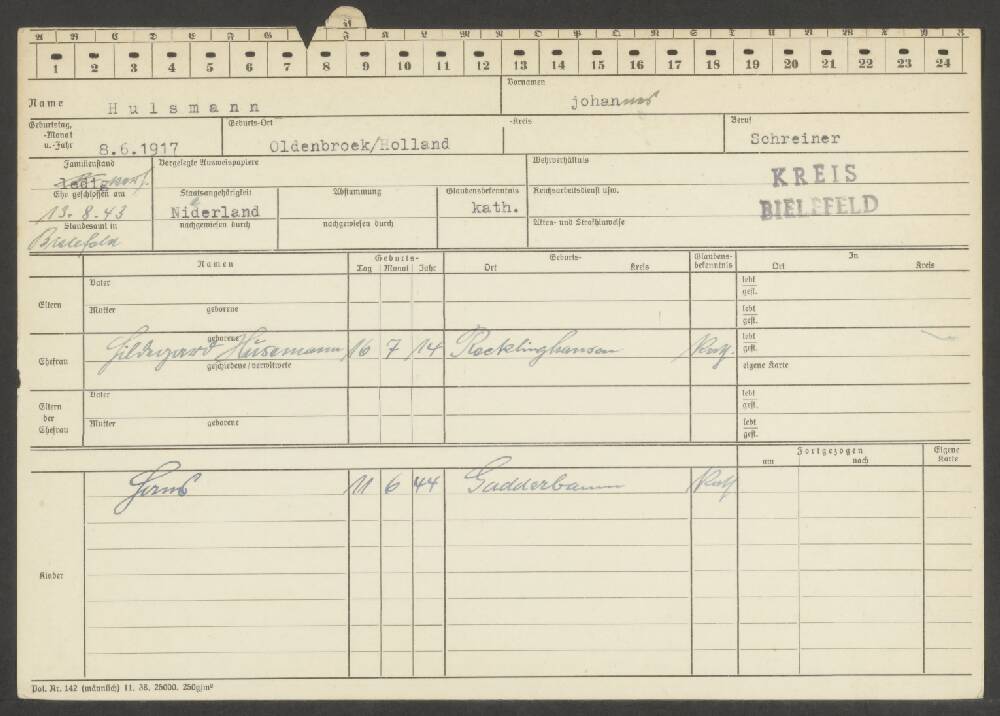 H
A B C D E F G J K L M N O P Q R S T U V W X Y Z
1 2 3 4 5 6 7 8 9 10 11 12 13 14 15 16 17 18 19 20 21 22 23 24
Name Hulsmann
Vornamen johannes
Geburtstag, -Monat u.-Jahr 8.6.1917
Geburts-Ort Oldenbroek/Holland
-Kreis
Beruf Schreiner
Familienstand
ledig verh.
Ehe geschlossen am
13.8.43
Standesamt in
Bielefeld
Vorgelegte Ausweispapiere
Staatsangehörigkeit
Niderland
nachgewiesen durch
Abstammung
nachgewiesen durch
Glaubensbekenntnis
kath.
Wehrverhältnis
Reichsarbeitsdienst usw.
Akten- und Strafhinweise
KREIS
BIELEFELD
Namen
Geburts-
Tag Monat Jahr
Geburts-
Ort Kreis
Glaubens-
bekenntnis
In
Ort Kreis
Eltern
Vater
lebt
gest.
Mutter geborene
lebt
gest.
Ehefrau
geborene
Hildegard Husemann 16 7 14 Recklinghausen kath.
geschiedene/verwitwete
lebt
gest.
eigene Karte
Eltern
der
Ehefrau
Vater
lebt
gest.
Mutter geborene
lebt
gest.
Fortgezogen
am nach
Eigene
Karte
Kinder
Hans 11 6 44 Gadderbaum kath
Pol. Nr. 142 (männlich) 11. 38. 25000. 250g/m²